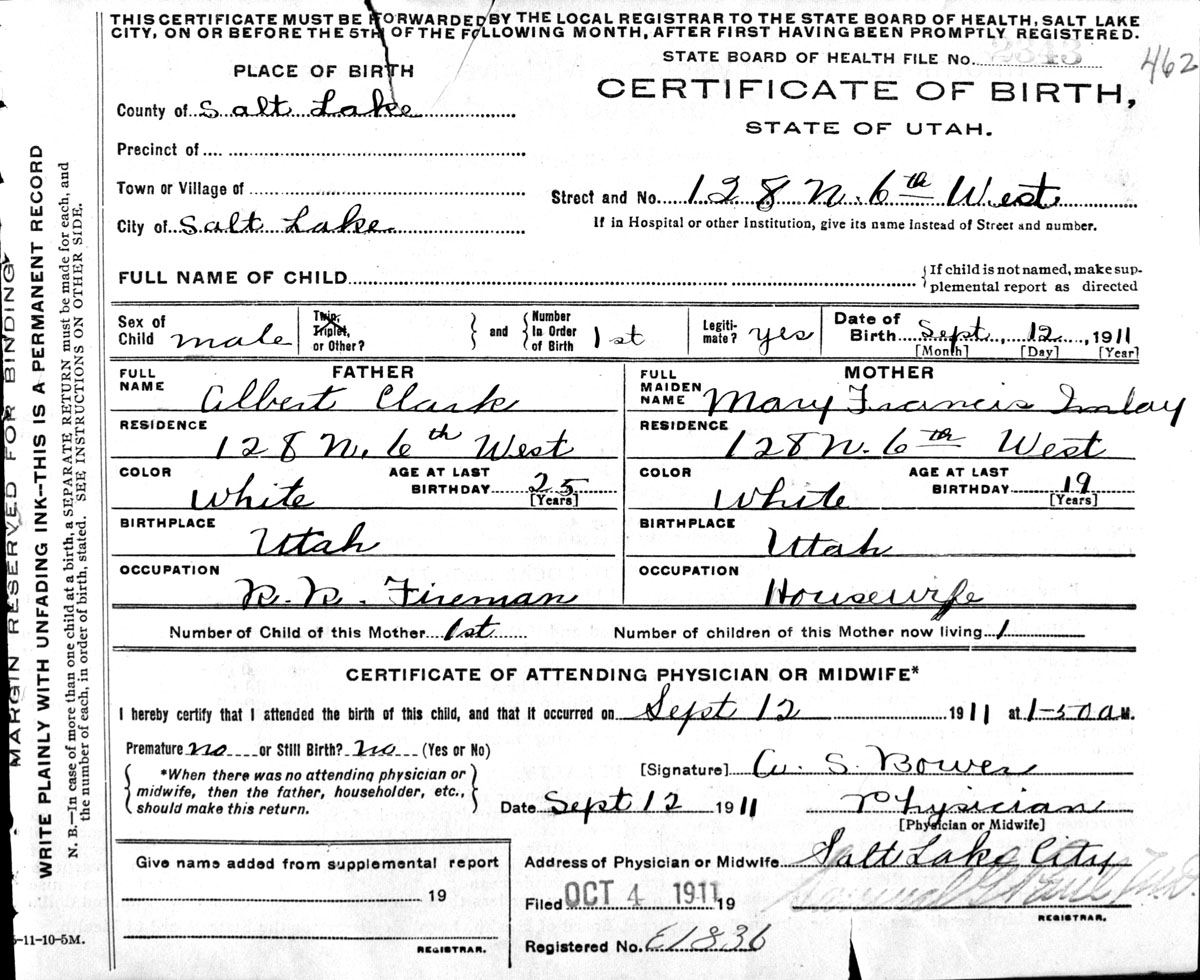 THIS CERTIFICATE MUST BE FORWARDED BY THE LOCAL REGISTRAR TO THE STATE BOARD OF HEALTH, SALT LAKE
CITY, ON OR BEFORE THE 5TH OF THE FOLLOWING MONTH, AFTER FIRST HAVING BEEN PROMPTLY REGISTERED.
STATE BOARD OF HEALTH FILE No. 2343
462
PLACE OF BIRTH
CERTIFICATE OF BIRTH,
STATE OF UTAH.
County of Salt Lake
Precinct of
Town or Village of
Street and No. 128 N. 6th West
City of Salt Lake
If in Hospital or other Institution, give its name instead of Street and number.
FULL NAME OF CHILD
{If child is not named, make sup-
plemental report as directed
Sex of Child male
Twin, Triplet, or Other?
and
Number In Order of Birth 1st
Legiti-mate? yes
Date of Birth Sept, 12, 1911
[Month] [Day] [Year]
FATHER
FULL NAME Albert Clark
MOTHER
FULL MAIDEN NAME Mary Francis Imlay
RESIDENCE 128 N. 6th West
RESIDENCE 128 N. 6th West
COLOR White AGE AT LAST BIRTHDAY 25 [Years]
COLOR White AGE AT LAST BIRTHDAY 19 [Years]
BIRTHPLACE Utah
BIRTHPLACE Utah
OCCUPATION R. R. Fireman
OCCUPATION Housewife
Number of Child of this Mother 1st
Number of children of this Mother now living 1
CERTIFICATE OF ATTENDING PHYSICIAN OR MIDWIFE*
I hereby certify that I attended the birth of this child, and that it occurred on Sept 12 1911 at 1-50 a M.
Premature no or Still Birth? no (Yes or No)
*When there was no attending physician or
midwife, then the father, householder, etc.,
should make this return.
[Signature] W. S. Bower
Date Sept 12 1911
Physician
[Physician or Midwife]
Give name added from supplemental report
19
REGISTRAR.
Address of Physician or Midwife Salt Lake City
Filed OCT 4 1911 19
REGISTRAR.
Registered No. E1836
5-11-10-5M.
MARGIN RESERVED FOR BINDING
WRITE PLAINLY WITH UNFADING INK--THIS IS A PERMANENT RECORD
N. B.—In case of more than one child at a birth, a SEPARATE RETURN must be made for each, and
the number of each, in order of birth, stated. SEE INSTRUCTIONS ON OTHER SIDE.